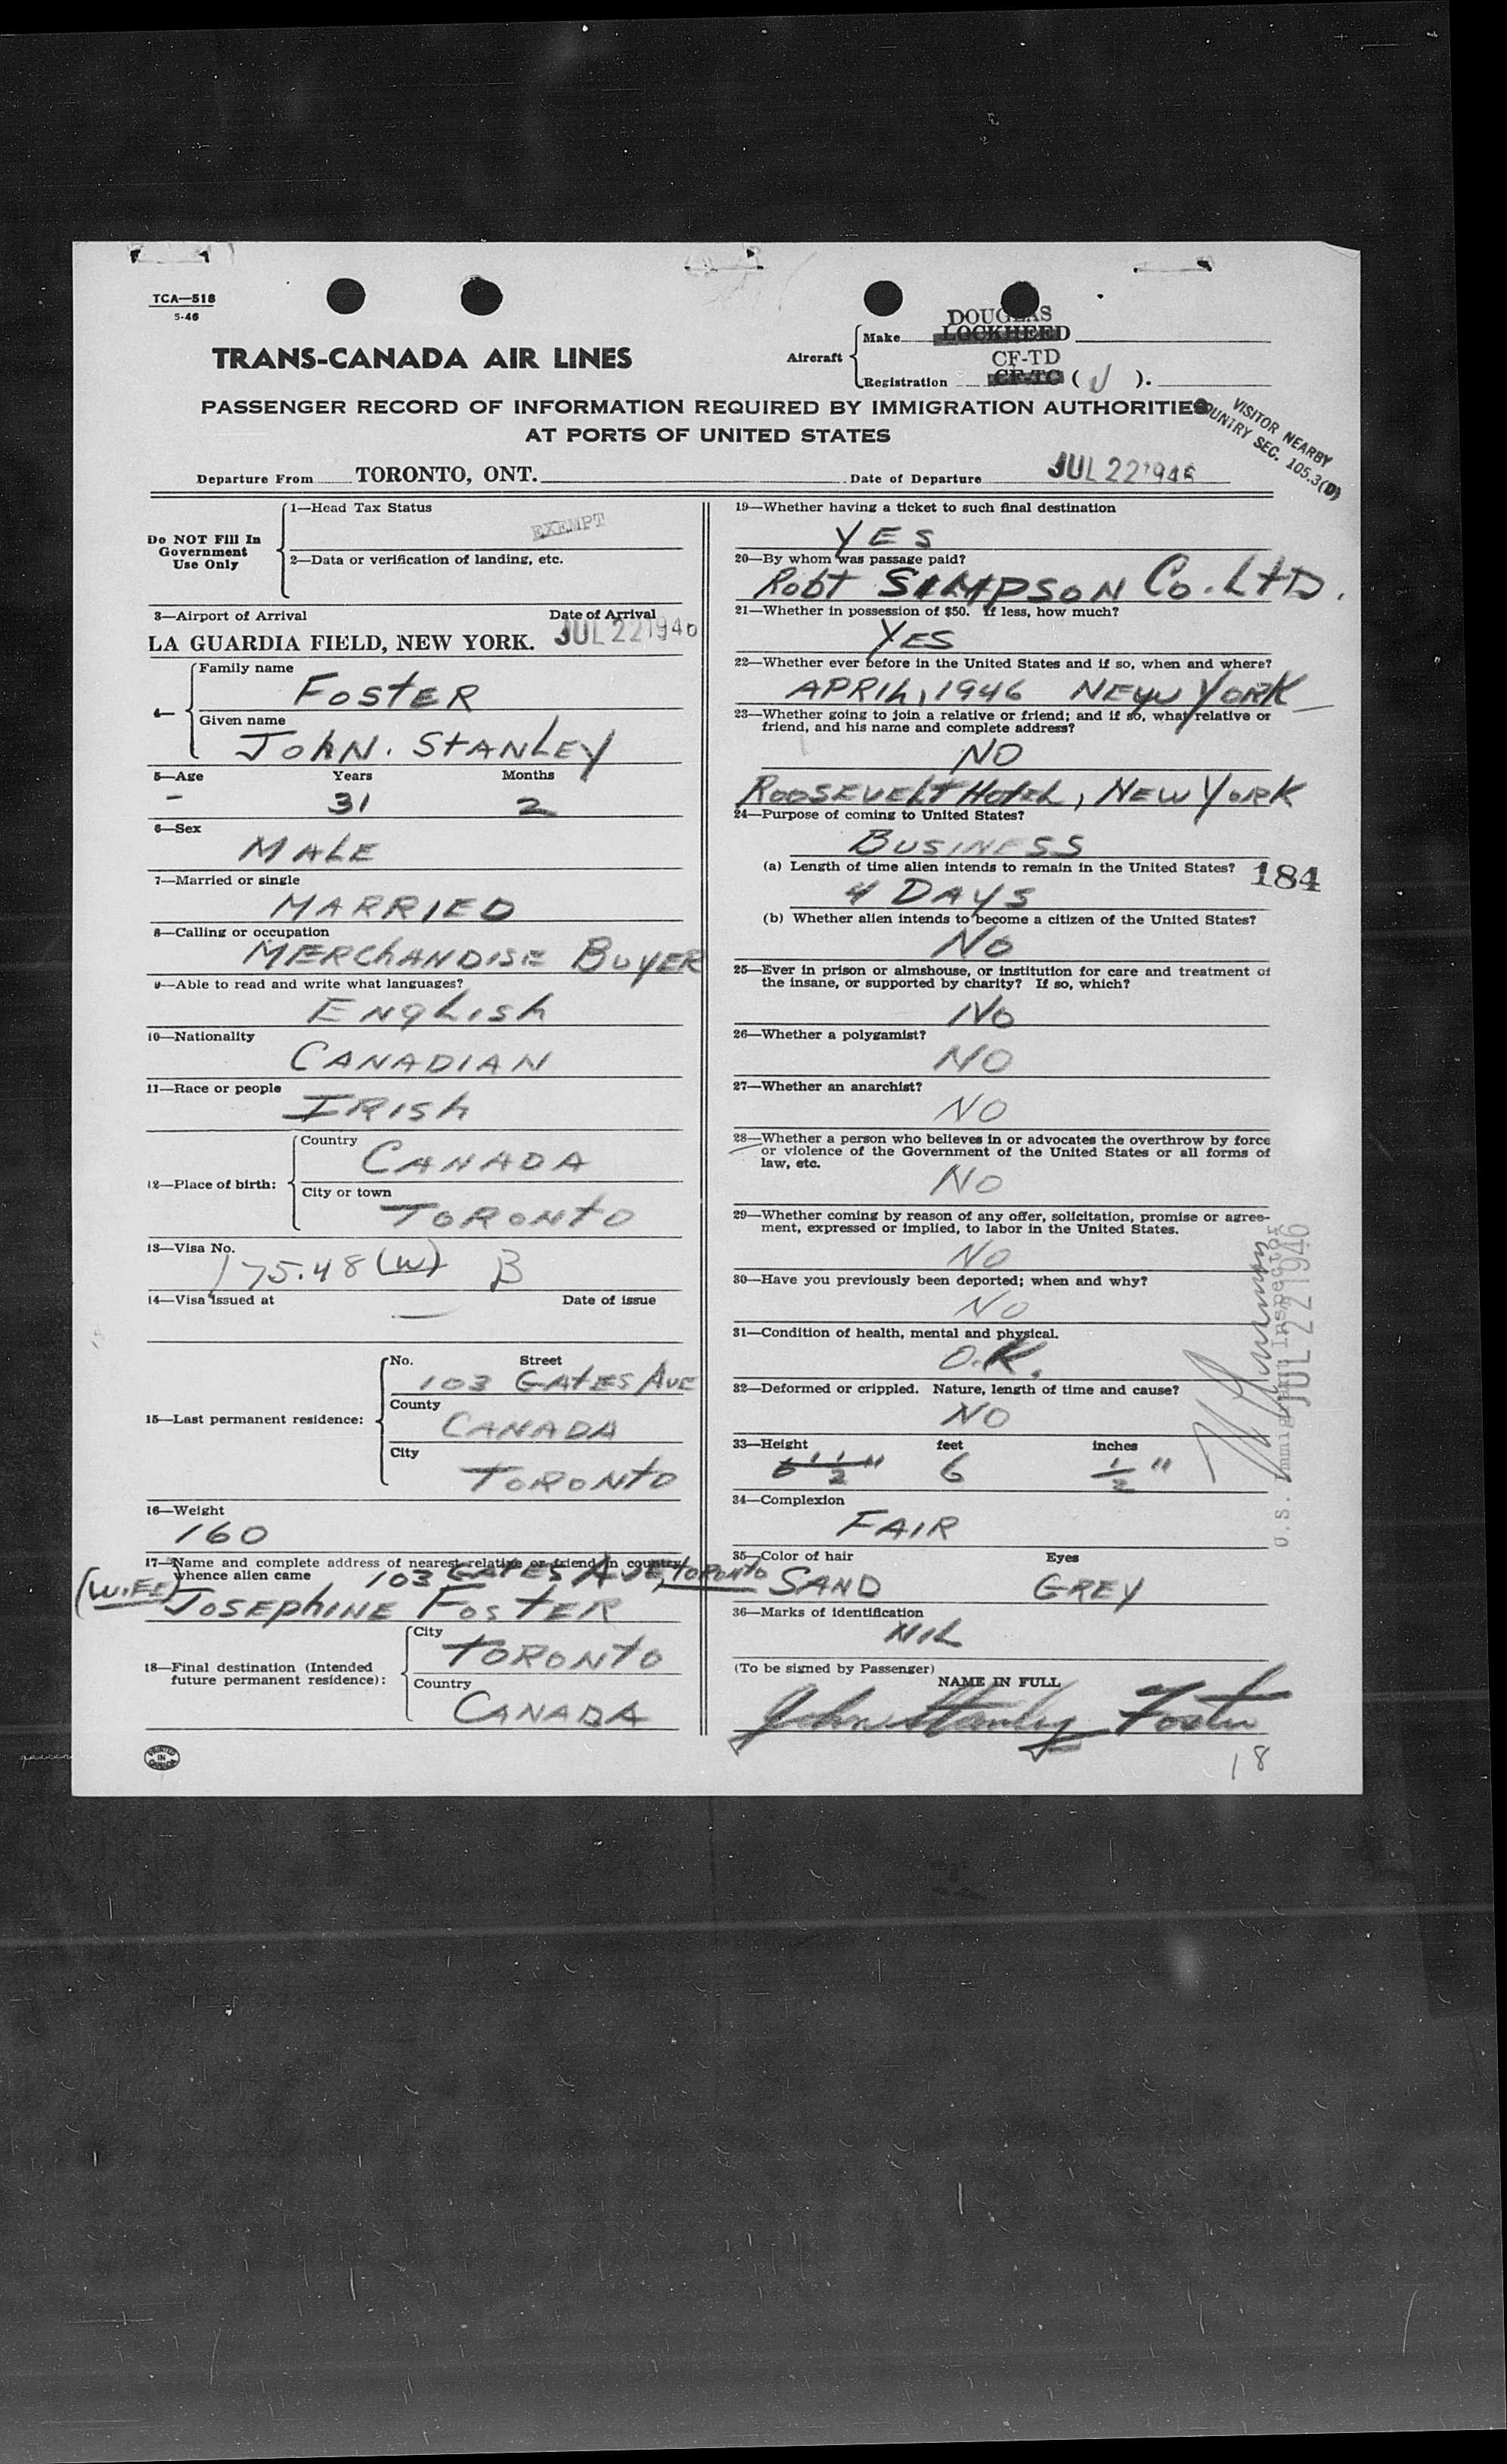 TCA—518
5-46
TRANS-CANADA AIR LINES
Aircraft
Make
DOUGLAS
LOCKHEED
Registration
CF-TD
CF-TC ( J ).
PASSENGER RECORD OF INFORMATION REQUIRED BY IMMIGRATION AUTHORITIES
AT PORTS OF UNITED STATES
VISITOR NEARBY
COUNTRY SEC. 105.3(D)
Departure From TORONTO, ONT. Date of Departure JUL 22 1946
Do NOT Fill In
Government
Use Only
1—Head Tax Status
EXEMPT
2—Data or verification of landing, etc.
3—Airport of Arrival Date of Arrival
LA GUARDIA FIELD, NEW YORK. JUL 22 1946
4—
Family name
FOSTER
Given name
JOHN. STANLEY
5—Age Years Months
– 31 2
6—Sex
MALE
7—Married or single
MARRIED
8—Calling or occupation
MERCHANDISE BUYER
9—Able to read and write what languages?
ENGLISH
10—Nationality
CANADIAN
11—Race or people
IRISH
12—Place of birth:
Country
CANADA
City or town
TORONTO
13—Visa No.
175.48 (W) B
14—Visa issued at Date of issue
—
15—Last permanent residence:
No. Street
103 GATES AVE
County
CANADA
City
TORONTO
16—Weight
160
17—Name and complete address of nearest relative or friend in country
whence alien came 103 GATES AVE, TORONTO
(WIFE) JOSEPHINE FOSTER
18—Final destination (Intended
future permanent residence):
City
TORONTO
Country
CANADA
PRINTED
IN
CANADA
19—Whether having a ticket to such final destination
YES
20—By whom was passage paid?
Robt SIMPSON Co. LTD.
21—Whether in possession of $50. If less, how much?
YES
22—Whether ever before in the United States and if so, when and where?
APRIL, 1946 NEW YORK
23—Whether going to join a relative or friend; and if so, what relative or
friend, and his name and complete address?
NO
ROOSEVELT HOTEL, NEW YORK
24—Purpose of coming to United States?
BUSINESS
(a) Length of time alien intends to remain in the United States?
184
4 DAYS
(b) Whether alien intends to become a citizen of the United States?
NO
25—Ever in prison or almshouse, or institution for care and treatment of
the insane, or supported by charity? If so, which?
NO
26—Whether a polygamist?
NO
27—Whether an anarchist?
NO
28—Whether a person who believes in or advocates the overthrow by force
or violence of the Government of the United States or all forms of
law, etc.
NO
29—Whether coming by reason of any offer, solicitation, promise or agree-
ment, expressed or implied, to labor in the United States.
NO
30—Have you previously been deported; when and why?
NO
31—Condition of health, mental and physical.
O.K.
32—Deformed or crippled. Nature, length of time and cause?
NO
33—Height feet inches
6' 1/2" 6 1/2"
34—Complexion
FAIR
35—Color of hair Eyes
SAND GREY
36—Marks of identification
NIL
(To be signed by Passenger)
NAME IN FULL
John Stanley Foster
18
U.S. Immigrant Inspector
JUL 22 1946